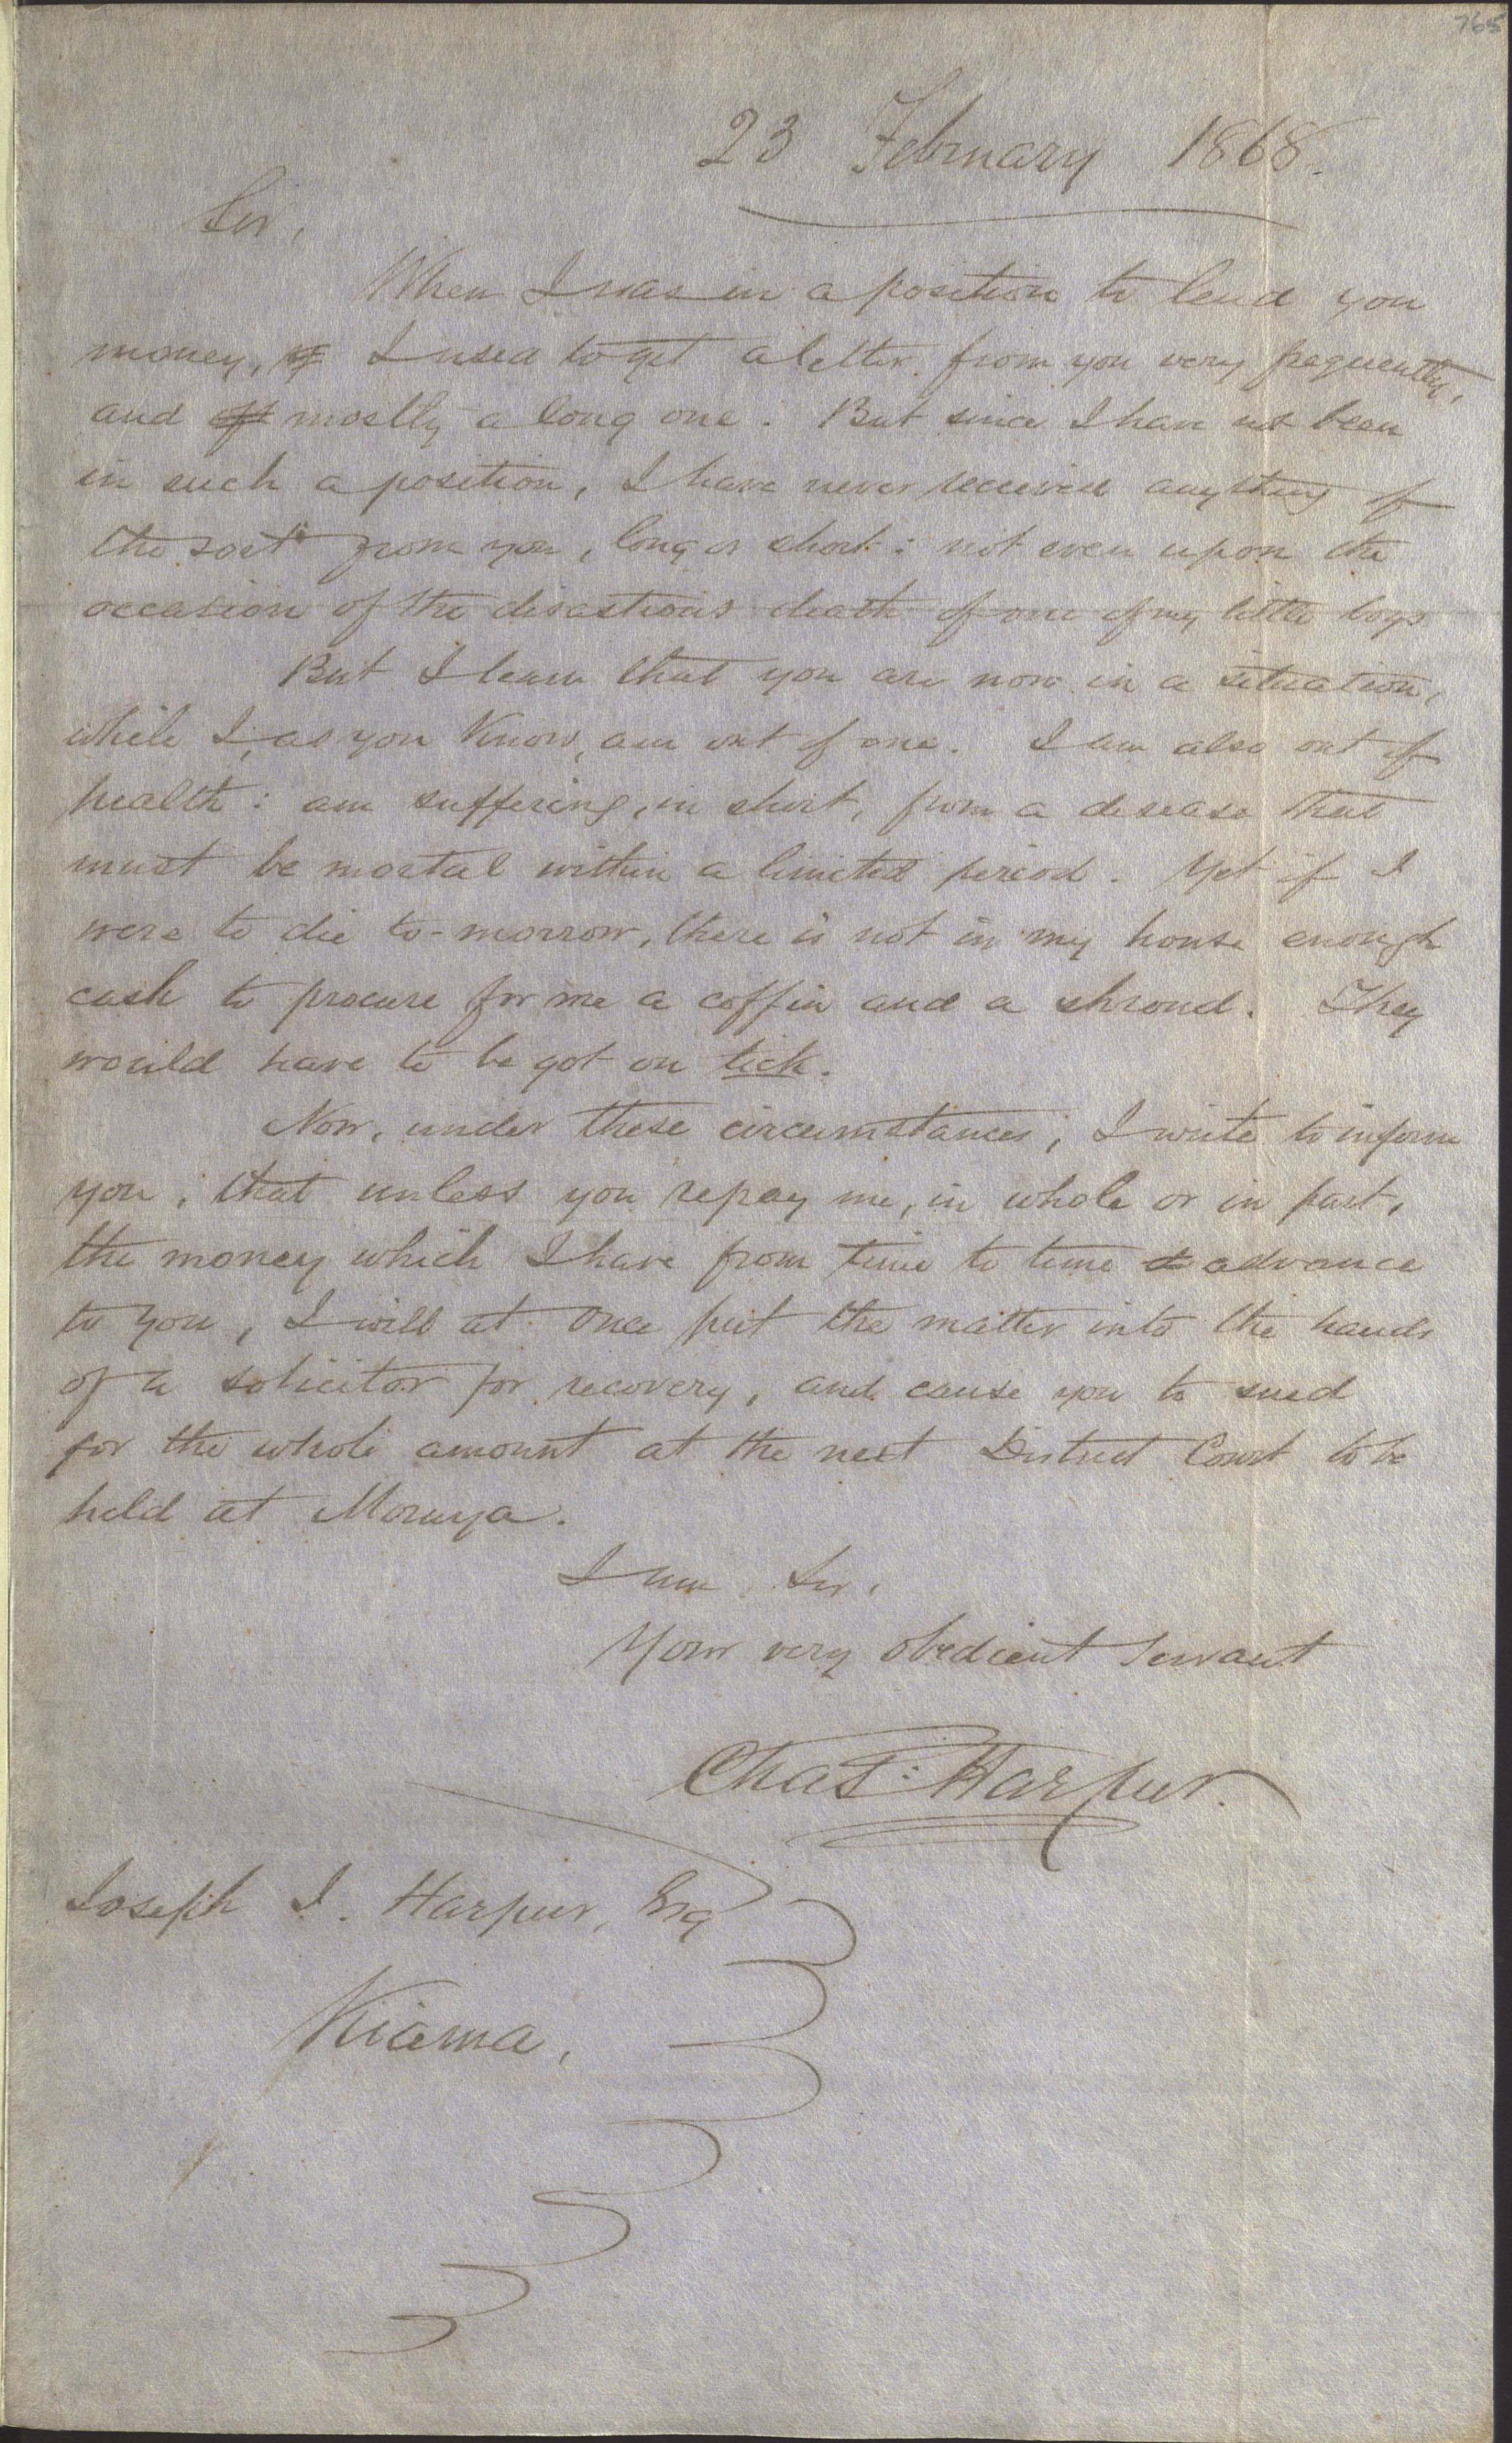 765
23 February 1868.
Sir,
When I was in a position to lend you
money, I used to get a letter from you very frequently,
and mostly a long one. But since I have not been
in such a position, I have never received anything of
the sort from you, long or short: not even upon the
occasion of the disastrous death of one of my little boys
But I learn that you are now in a situation,
while I, as you know, am out of one. I am also out of
health: am suffering, in short, from a disease that
must be mortal within a limited period. Yet if I
were to die to-morrow, there is not in my house enough
cash to procure for me a coffin and a shroud. They
would have to be got on tick.
Now, under these circumstances, I write to inform
you, that unless you repay me, in whole or in part,
the money which I have from time to time advance
to you, I will at once put the matter into the hands
of a solicitor for recovery, and cause you to sued
for the whole amount at the next District Court to be
held at Moruya.
I am Sir,
Your very obedient Servant
Chas: Harpur.
Joseph J. Harpur, Esq
Kiama,